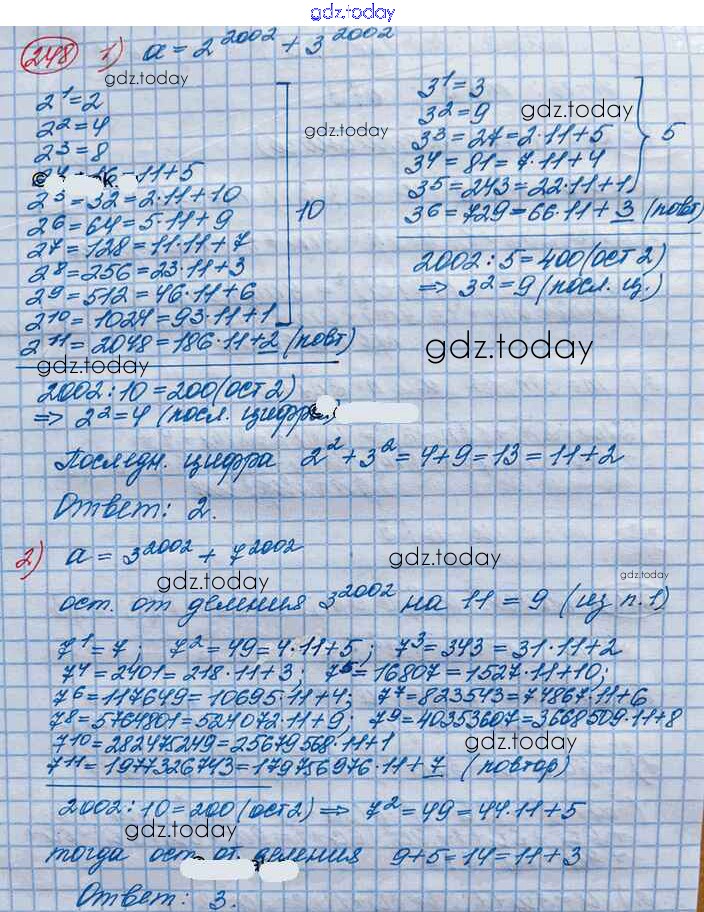 gdz.today
248 1) a = 2^2002 + 3^2002
gdz.today
2^1 = 2
2^2 = 4
2^3 = 8
11 + 5
2^5 = 32 = 2·11 + 10
2^6 = 64 = 5·11 + 9
2^7 = 128 = 11·11 + 7
2^8 = 256 = 23·11 + 3
2^9 = 512 = 46·11 + 6
2^10 = 1024 = 93·11 + 1
2^11 = 2048 = 186·11 + 2 (повт)
10
gdz.today
gdz.today
2002 : 10 = 200 (ост 2)
=> 2^2 = 4 (посл. цифра)
3^1 = 3
3^2 = 9
gdz.today
3^3 = 27 = 2·11 + 5
3^4 = 81 = 7·11 + 4
3^5 = 243 = 22·11 + 1
5
3^6 = 729 = 66·11 + 3 (повт)
2002 : 5 = 400 (ост 2)
=> 3^2 = 9 (посл. ц.)
gdz.today
Последн. цифра 2^2 + 3^2 = 4 + 9 = 13 = 11 + 2
Ответ: 2.
2) a = 3^2002 + 7^2002
gdz.today
gdz.today
gdz.today
ост. от деления 3^2002 на 11 = 9 (из п.1)
7^1 = 7; 7^2 = 49 = 4·11 + 5; 7^3 = 343 = 31·11 + 2
7^4 = 2401 = 218·11 + 3; 7^5 = 16807 = 1527·11 + 10;
7^6 = 117649 = 10695·11 + 4; 7^7 = 823543 = 74867·11 + 6
7^8 = 5764801 = 524072·11 + 9; 7^9 = 40353607 = 3668509·11 + 8
7^10 = 282475249 = 25679568·11 + 1
gdz.today
7^11 = 1977326743 = 179756976·11 + 7 (повтор)
2002 : 10 = 200 (ост 2) => 7^2 = 49 = 44·11 + 5
gdz.today
тогда ост. от деления 9 + 5 = 14 = 11 + 3
Ответ: 3.